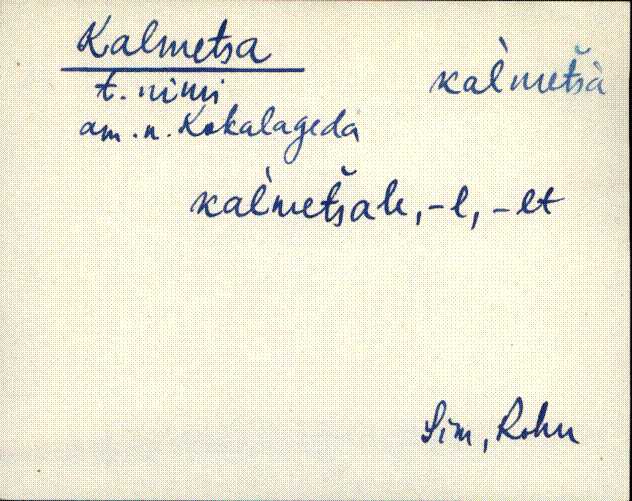 Kalmetsa
kal̀metšà
t. nimi
am. n. Kokalageda
kal̀metšale, -l, -lt
Sim, Rohu